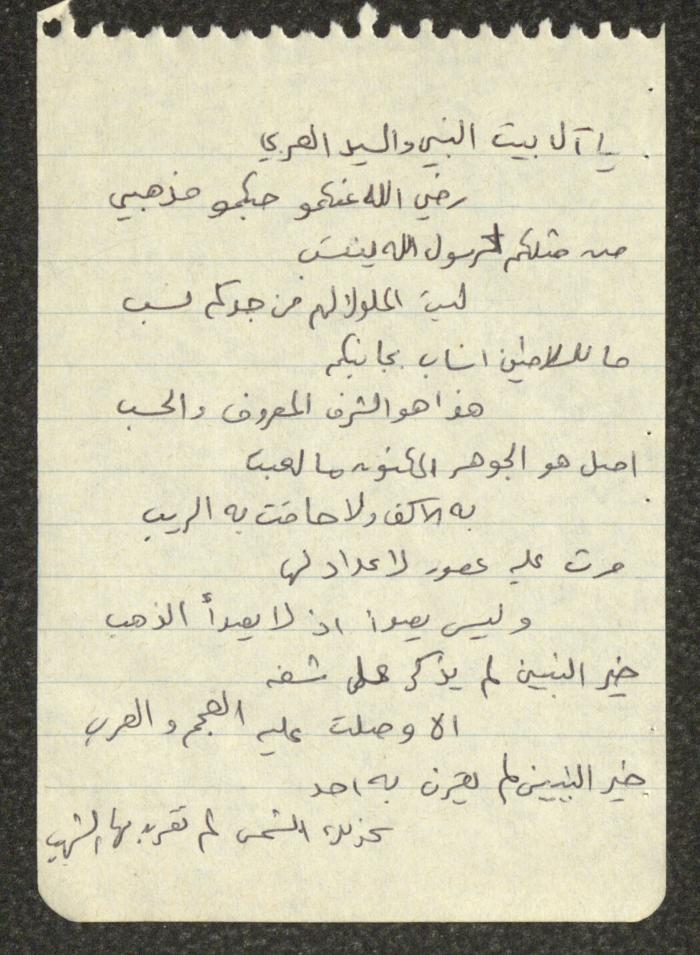 يا آل بيت النبي والسيد العربي
رضي الله عنكمو حبكمو مذهبي
من مثلكم لرسول الله ينتسب
ليت الملوك لهم من جدكم نسب
ما للسلاطين انساب بجانبكم
هذا هو الشرف المعروف والحسب
اصل هو الجوهر المكنون ما لعبت
به الاكف ولا حامت به الريب
مرت عليه عصور لا عداد لها
وليس يصدأ اذ لا يصدأ الذهب
خير النبيين لم يذكر على شفه
الا وصلت عليه العجم والعرب
خير النبيين لم يقرن به احد
الشمس لم تقرن بها الشهب